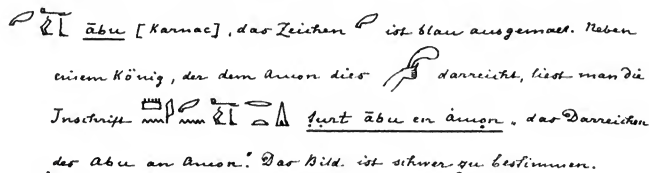 ābu [Karnac], das Zeichen ist blau ausgemalt. Neben
einem König, der dem Amon dies darreicht, liest man die
Inschrift ābu en āmon "das Darreichen
des Abu an Amon." Das Bild ist schwer zu bestimmen.